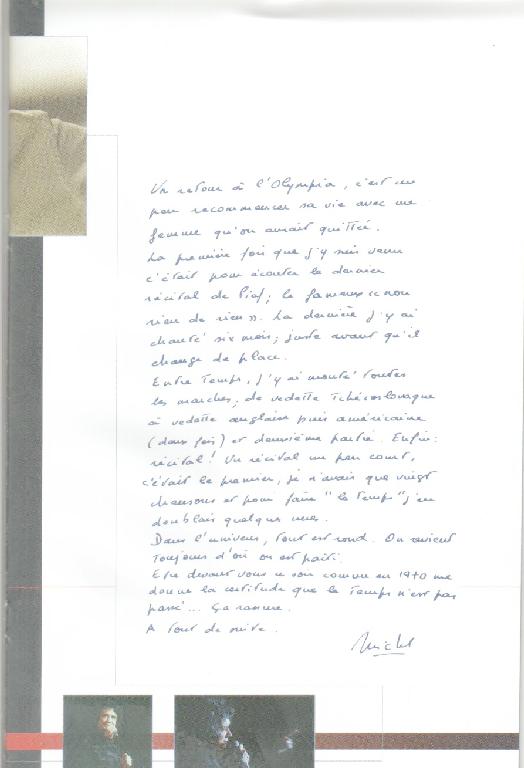 Un retour à l'Olympia, c'est un
peu recommencer sa vie avec une
femme qu'on aurait quittée.
La première fois que j'y suis venu
c'était pour écouter le dernier
récital de Piaf; le fameux « non
rien de rien ». La dernière j'y ai
chanté six mois; juste avant qu'il
change de place.
Entre temps, j'y ai monté toutes
les marches; de vedette Tchécoslovaque
à vedette anglaise puis américaine
(deux fois) et deuxième partie. Enfin:
récital! Un récital un peu court,
c'était le premier, je n'avais que vingt
chansons et pour faire "le temps" j'en
doublais quelques unes.
Dans l'univers, tout est rond. On revient
toujours d'où on est parti.
Etre devant vous ce soir comme en 1970 me
donne la certitude que le temps n'est pas
passé... Ça rassure.
A tout de suite.
Michel